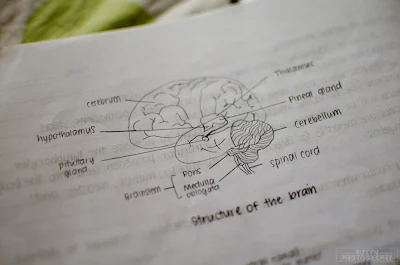 Thalamus
cerebrum
Pineal gland
hypothalamus
Cerebellum
pituitary
gland
spinal cord
Pons
Brainstem
Medulla
oblogata
Structure of the brain